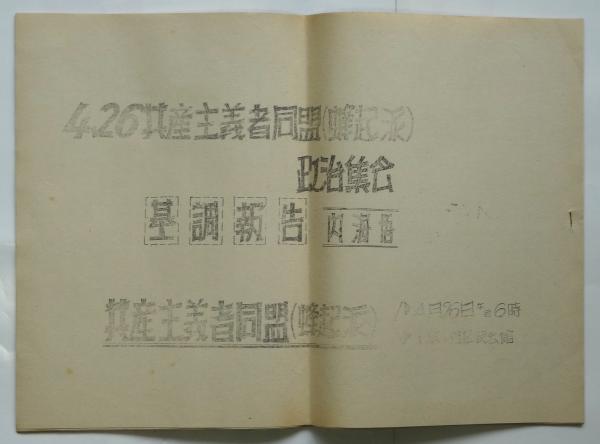 4.26共産主義者同盟(蜂起派)
政治集会
基調報告
共産主義者同盟(蜂起派)
4月26日 6時